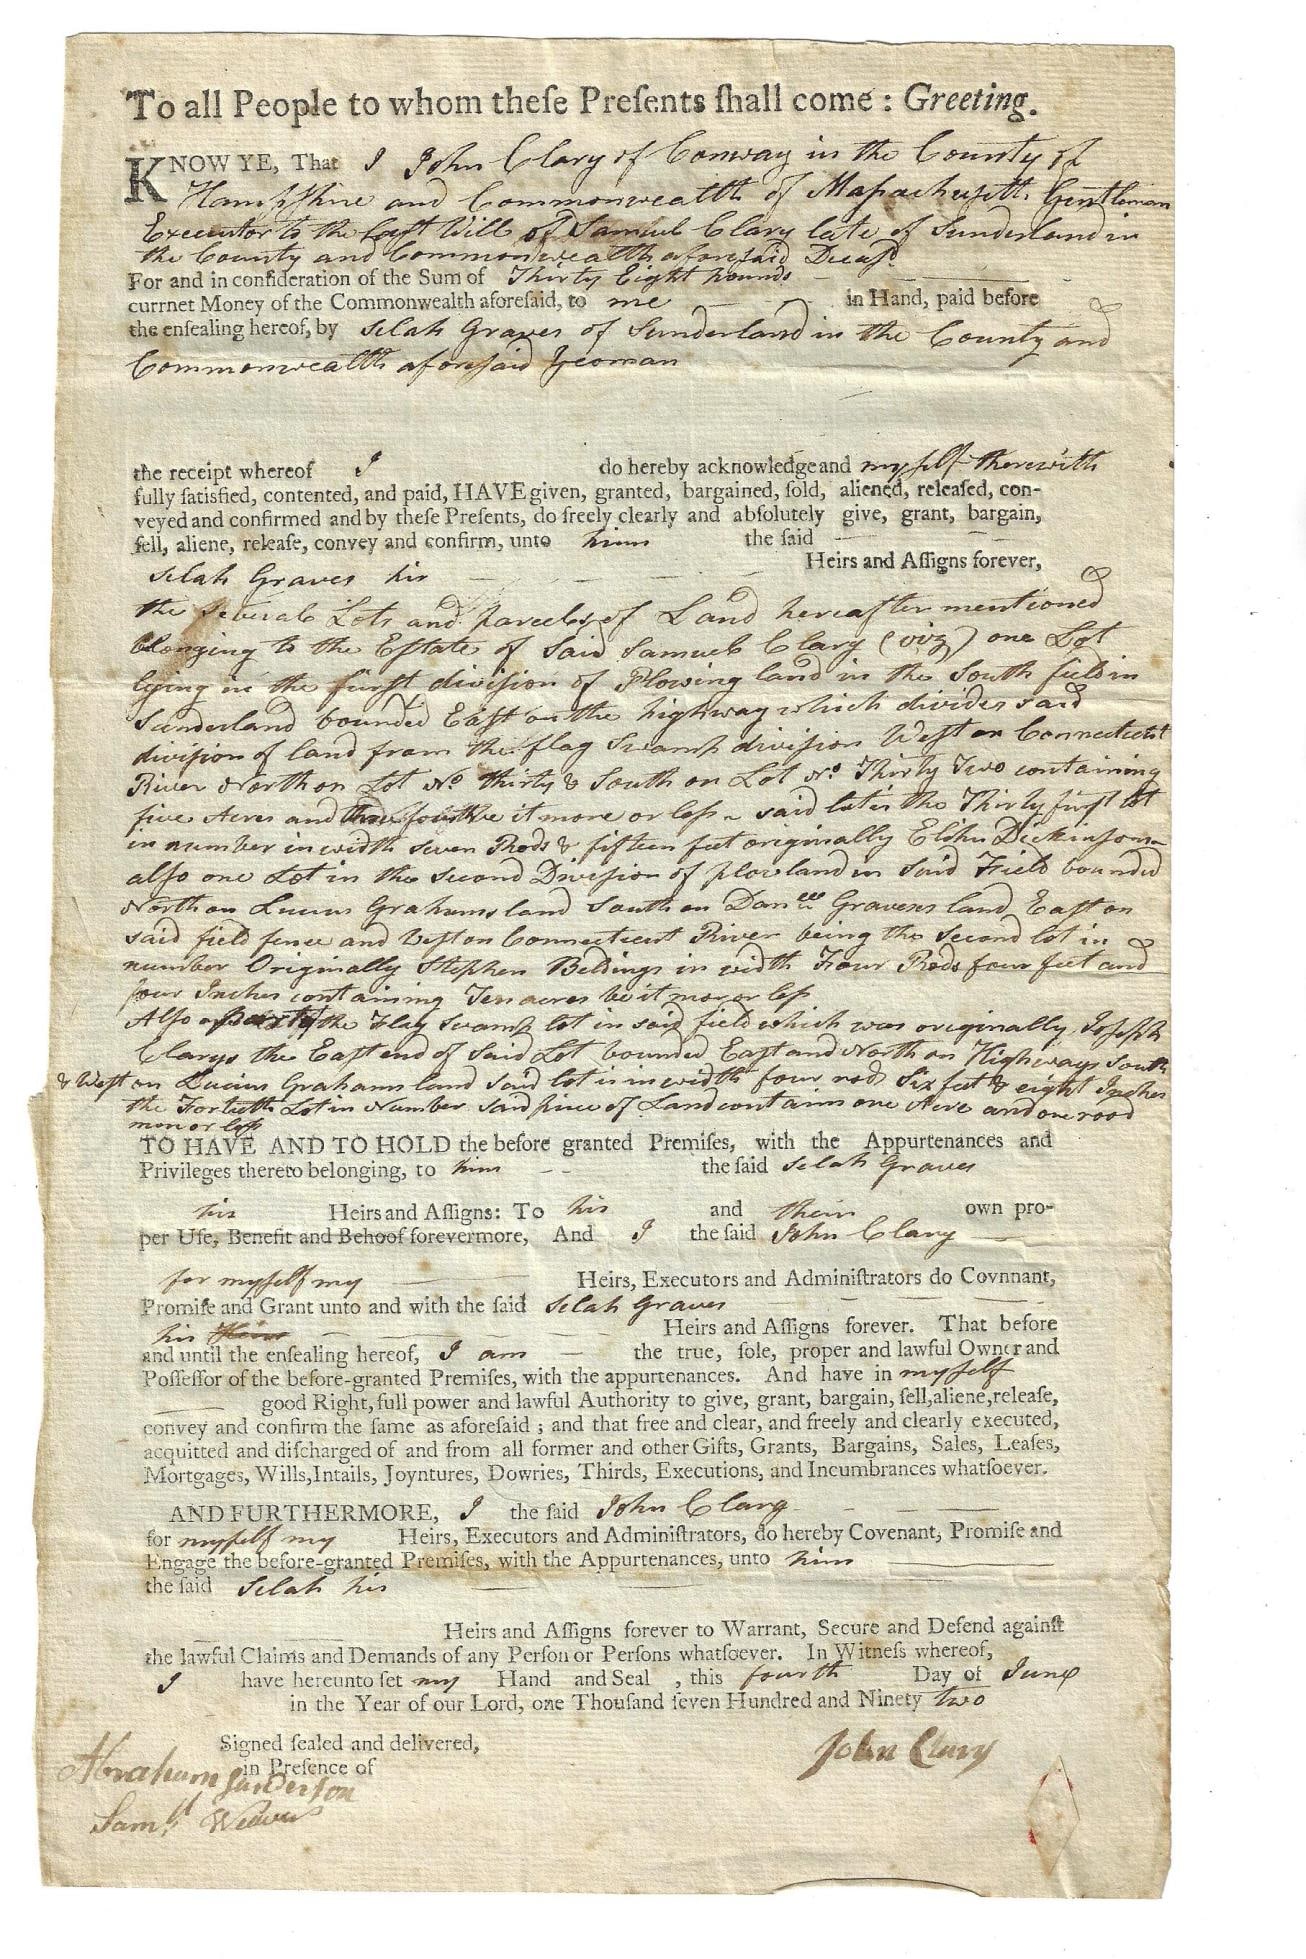 To all People to whom theſe Preſents ſhall come: Greeting.
KNOW YE, That I John Clary of Conway in the County of
Hampſhire and Commonwealth of Maſsachuſetts Gentleman
Executor to the Laſt Will of Samuel Clary late of Sunderland in
the County and Commonwealth aforeſaid Deceaſd
For and in conſideration of the Sum of Thirty Eight pounds
currnet Money of the Commonwealth aforeſaid, to me in Hand, paid before
the enſealing hereof, by Selah Graves of Sunderland in the County and
Commonwealth aforeſaid Yeoman
the receipt whereof I do hereby acknowledge and myſelf therewith
fully ſatisfied, contented, and paid, HAVE given, granted, bargained, ſold, aliened, releaſed, con-
veyed and confirmed and by theſe Preſents, do freely clearly and abſolutely give, grant, bargain,
ſell, aliene, releaſe, convey and confirm, unto him the said
Selah Graves his Heirs and Aſſigns forever,
the Several Lots and parcels of Land hereafter mentioned
belonging to the Eſtate of Said Samuel Clary (viz) one Lot
lying in the firſt diviſion of Plowing land in the South field in
Sunderland bounded Eaſt on the highway which divides said
diviſion of land from the flag Swamp diviſion Weſt on Connecticut
River North on Lot No thirty & South on Lot No Thirty Two containing
five Acres and three fourths be it more or leſs said lot is the Thirty firſt lot
in number in width seven Rods & fifteen feet originally Elihu Dickinſons
alſo one Lot in the Second Diviſion of plowland in Said Field bounded
North on Lucius Grahams land South on Danll Graveses land Eaſt on
said field fence and Weſt on Connecticut River being the Second lot in
number Originally Stephen Beldings in width Four Rods four feet and
four Inches containing Ten acres be it mor or leſs
Alſo a Part of the Flag Swamp lot in said field which was originally Joſeph
Clarys the Eaſt end of Said Lot bounded Eaſt and North on Highways South
& Weſt on Lucius Grahams land said lot is in width four rods Six feet & eight Inches
the Fortieth Lot in Number said piece of Land contains one Acre and one rood
mor or leſs
TO HAVE AND TO HOLD the before granted Premiſes, with the Appurtenances and
Privileges thereto belonging, to him the ſaid Selah Graves
his Heirs and Aſſigns: To his and their own pro-
per Uſe, Benefit and Behoof forevermore, And I the ſaid John Clary
for myſelf my Heirs, Executors and Adminiſtrators do Covnnant,
Promiſe and Grant unto and with the ſaid Selah Graves
his Heirs and Aſſigns forever. That before
and until the enſealing hereof, I am the true, ſole, proper and lawful Owner and
Poſſeſſor of the before-granted Premiſes, with the appurtenances. And have in myſelf
good Right, full power and lawful Authority to give, grant, bargain, ſell, aliene, releaſe,
convey and confirm the ſame as aforeſaid; and that free and clear, and freely and clearly executed,
acquitted and diſcharged of and from all former and other Gifts, Grants, Bargains, Sales, Leaſes,
Mortgages, Wills, Intails, Joyntures, Dowries, Thirds, Executions, and Incumbrances whatſoever.
AND FURTHERMORE, I the ſaid John Clary
for myſelf my Heirs, Executors and Adminiſtrators, do hereby Covenant, Promiſe and
Engage the before-granted Premiſes, with the Appurtenances, unto him
the ſaid Selah his
Heirs and Aſſigns forever to Warrant, Secure and Defend againſt
the lawful Claims and Demands of any Perſon or Perſons whatſoever. In Witneſs whereof,
I have hereunto ſet my Hand and Seal, this fourth Day of June
in the Year of our Lord, one Thouſand ſeven Hundred and Ninety two
Signed ſealed and delivered,
in Preſence of
John Clary
Abraham Sanderson
Samll